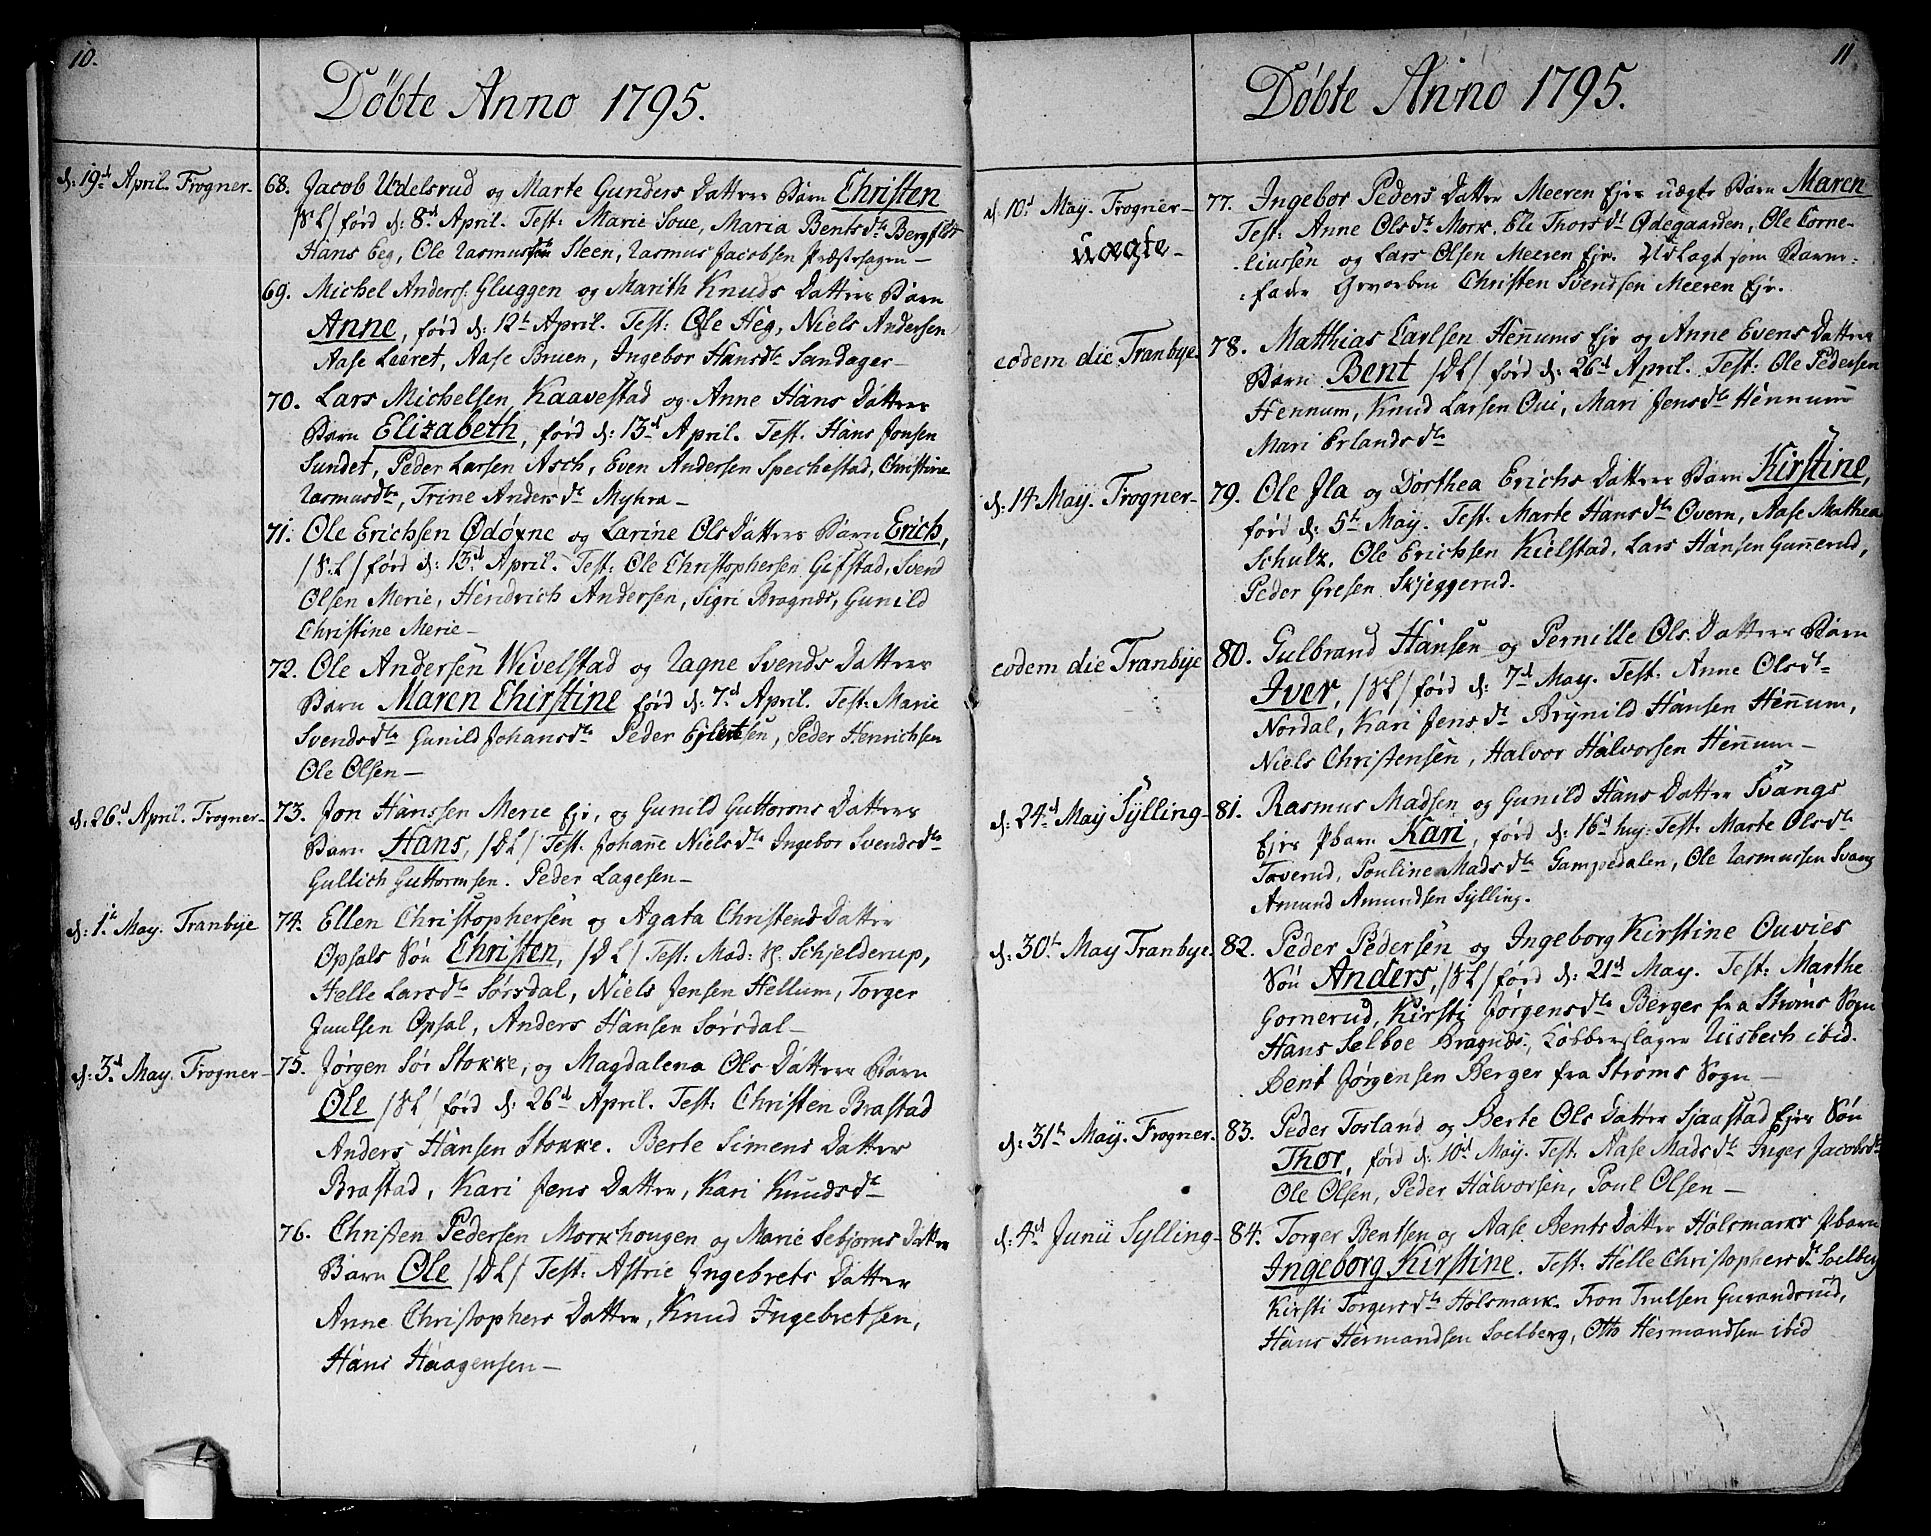 10.
Döbte Anno 1795.
d: 19d April. Frogner- 68. Jacob Udelsrud og Marte Gunders Datters Barn Christen
/SL/ förd d: 8d April. Test: Marie Soue, Maria Bentsdtr Bergflødt
Hans Eeg, Ole Rasmussen Steen, Rasmus Jacobsen Præstesagen-
69. Michel Anders: Gluggen og Marith Knuds Datters Barn
Anne, förd d: 12t April. Test: Ole Heg, Niels Andersen
Aase Leeret, Aase Bruen, Ingebor Hansdtr Sandager-
70. Lars Michelsen Kaavestad og Anne Hans Datters
Barn Elizabeth, förd d: 13d April. Test. Hans Jonsen
Sundet, Peder Larsen Asch, Even Andersen Spechestad, Christine
Rasmusdtr, Trine Andersdtr Myhra-
71. Ole Erichsen Ödöxne og Larine Ols Datters Barn Erich,
/S.L/ förd d: 13d April. Test: Ole Christophersen Gifstad, Svend
Olsen Merie, Hendrich Andersen, Sigri Bragnds, Gunild
Christine Merie-
72. Ole Andersen Wivelstad og Ragne Svends Datters
Barn Maren Chirstine förd d: 7d April. Test: Marie
Svendsdtr Gunild Johansdtr Peder Eylertsen, Peder Henrichsen
Ole Olsen-
d: 26d April. Frogner- 73. Jon Hanssen Merie Ejr, og Gunild Guttorms Datters
Barn Hans, /DL/ Test. Johanne Nielsdtr Ingebor Svendsdtr
Gullich Guttormsen. Peder Lagesen-
d: 1t May. Tranbye 74. Ellen Christophersen og Agata Christens Datter
Opsals Sön Christen, /DL/ Test: Mad: H. Schjelderup,
Helle Larsdtr Sörsdal, Niels Jensen Hellum, Torger
Juulsen Opsal, Anders Hansen Sörsdal-
d: 3d May. Frogner- 75. Jörgen Sör Stokke, og Magdalena Ols Datters Barn
Ole /SL/ förd d: 26d April. Test: Christen Brastad
Anders Hansen Stokke. Berte Simens Datter
Brastad, Kari Jens Datter, Kari Knudsdtr
76. Christen Pedersen Morkhougen og Marie Sebjorns Datter
Barn Ole /DL/ Test: Astrie Ingebrets Datter
Anne Christophers Datter, Knud Ingebretsen,
Hans Haagensen-
11
Döbte Anno 1795.
d. 10d May. Frogner- 77. Ingebor Peders Datter Meeren Ejes uægte Barn Maren
Test: Anne Olsdtr Mork. Ele Thorsdtr Ödegaarden, Ole Corne-
uægte-
liussen og Lars Olsen Meeren Ejr. Udlagt som Barne-
fader Gevorben Christen Svendsen Meeren Ejr.
eodem die Tranbye. 78. Matthias Carlsen Hennums Ejr og Anne Evens Datters
Barn Bent /DL/ förd d: 26d April. Test: Ole Pedersen
Hennum, Knud Larsen Oui, Mari Jensdtr Hennum
Mari Erlandsdtr
d: 14 May. Frogner- 79. Ole Ila og Dorthea Erichs Datters Barn Kirstine,
förd d: 5t May. Test: Marte Hansdtr Overn, Aase Mathea
Schulz, Ole Erichsen Kielstad, Lars Hansen Gunnerud,
Peder Gresen Skjeggerud.
eodem die Tranbye 80. Gulbrand Hansen og Pernille Ols. Datters Barn
Iver, /SL/ förd d: 7d May. Test: Anne Olsdtr
Nordal, Kari Jensdtr Brynild Hansen Hennum,
Niels Christensen, Halvor Halvorsen Hennum-
d: 24d May Sylling- 81. Rasmus Madsen og Gunild Hans Datter Svangs
Ejes Pbarn Kari, förd d: 16d huj: Test: Marte Olsdtr
Taverud, Pouline Madsdtr Gampedalen, Ole Rasmussen Svang
Amund Amundsen Sylling.
d: 30t May Tranbye. 82. Peder Pedersen og Ingeborg Kirstine Ouvies
Sön Anders, /SL/ förd d: 21d May. Test: Marthe
Gornerud, Kirsti Jörgensdtr Berger fra Ströms Sogn
Hans Selboe Bragnds., Kobberslager Riisbech ibid.
Bent Jörgensen Berger fra Ströms Sogn-
d: 31t May. Frogner. 83. Peder Torsland og Berte Ols Datter Sjaastad Ejes Sön
Thor, förd d: 10d May. Test. Aase Madsdtr Inger Jacobsdtr
Ole Olsen, Peder Halvorsen, Poul Olsen-
d: 4d Junii Sylling- 84. Torger Bentsen og Aase Bents Datter Holsmarks Pbarn
Ingeborg Kirstine. Test: Helle Christophersdtr Soelberg
Kirsti Torgersdtr Holsmark. Tron Trulsen Gurandsrud,
Hans Hermandsen Soelberg, Otto Hermandsen ibid